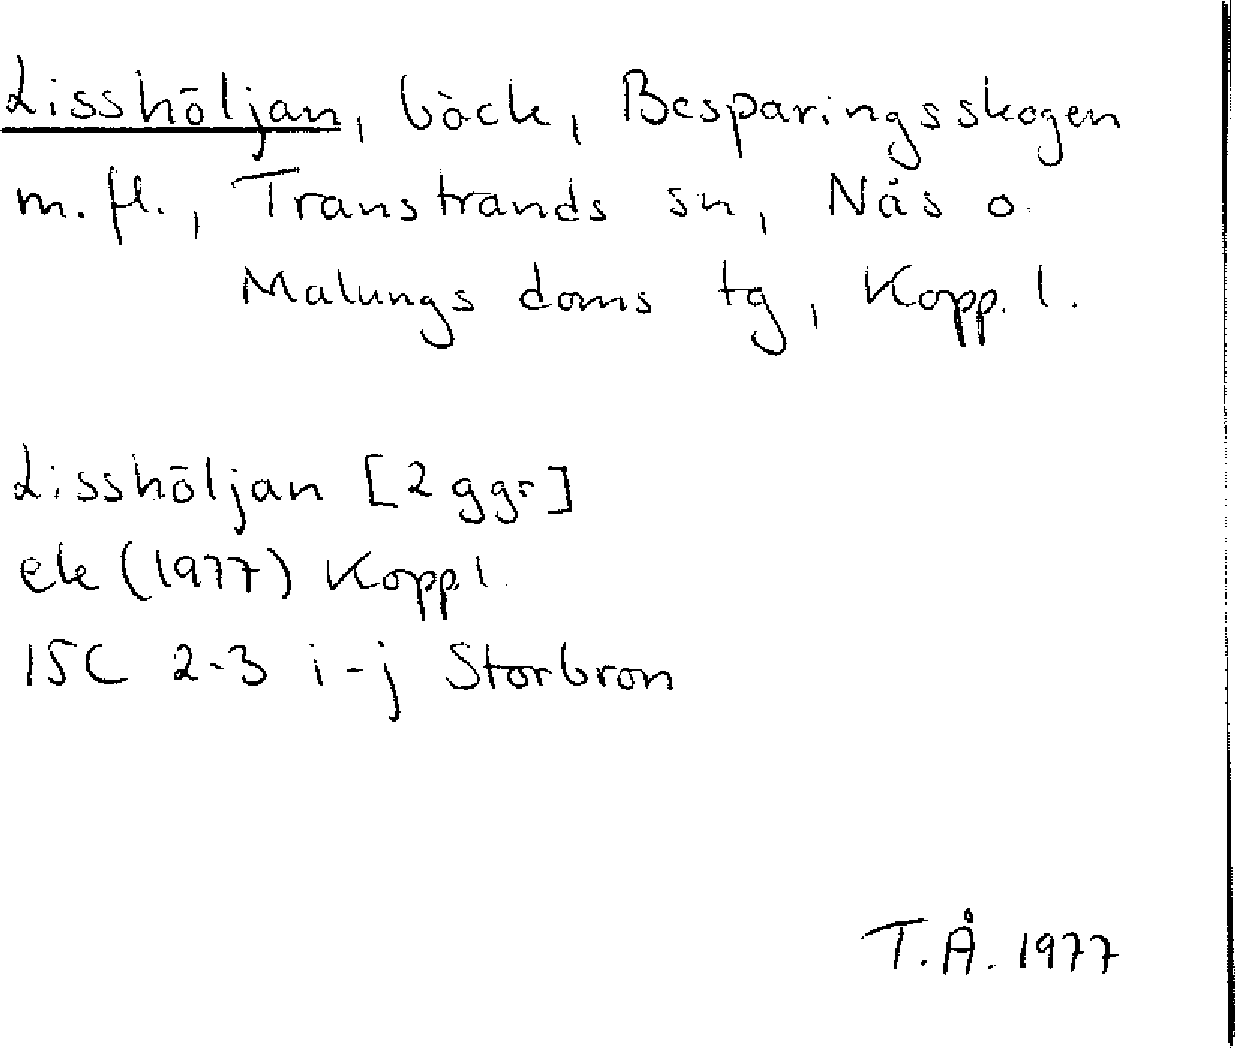 Lisshöljan, bäck, Besparingsskogen
m.fl., Transtrands sn, Näs o.
Malungs doms tg, Kopp. l.
Lisshöljan [2 ggr]
ek (1977) Kopp l.
15C 2-3 i-j Storbron
T.Å. 1977